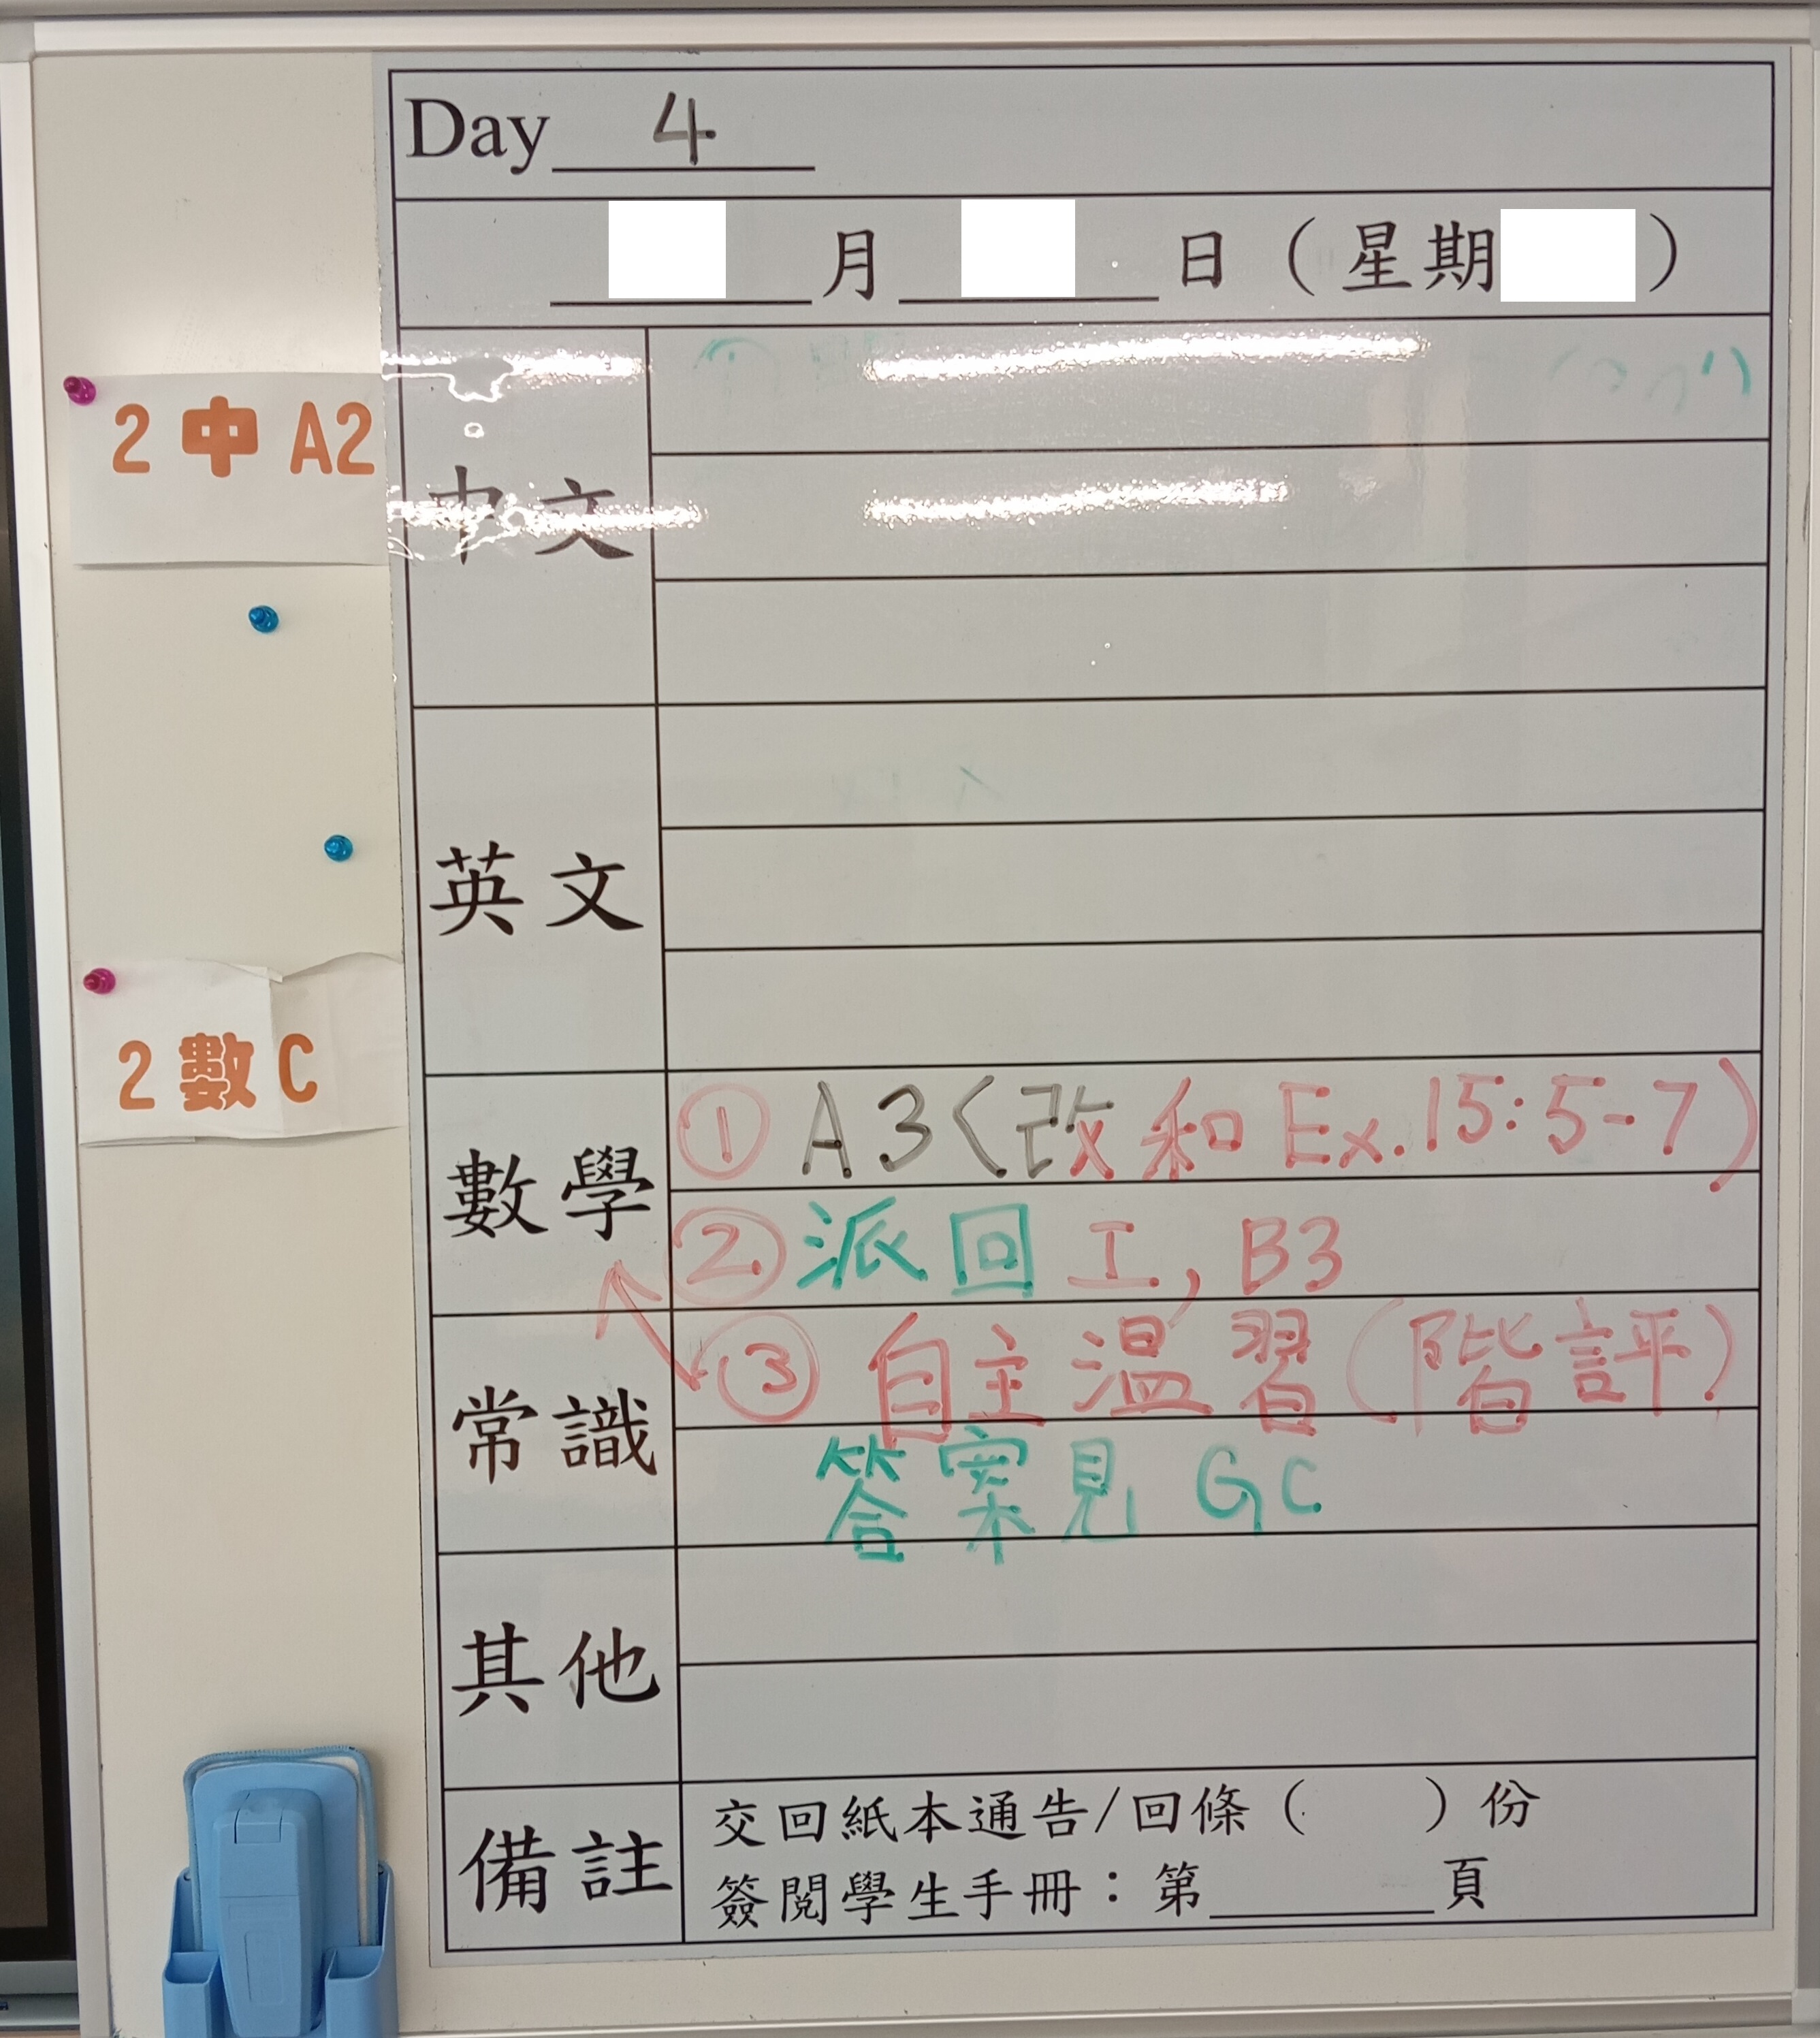 Day 4
月 日 (星期 )
2 中 A2
中文
英文
2 數 C
數學
① A3 (改和 Ex.15: 5-7)
② 派回 工, B3
常識
③ 自主溫習 (階評)
答案見 GC
其他
備註
交回紙本通告/回條 ( ) 份
簽閱學生手冊:第 頁